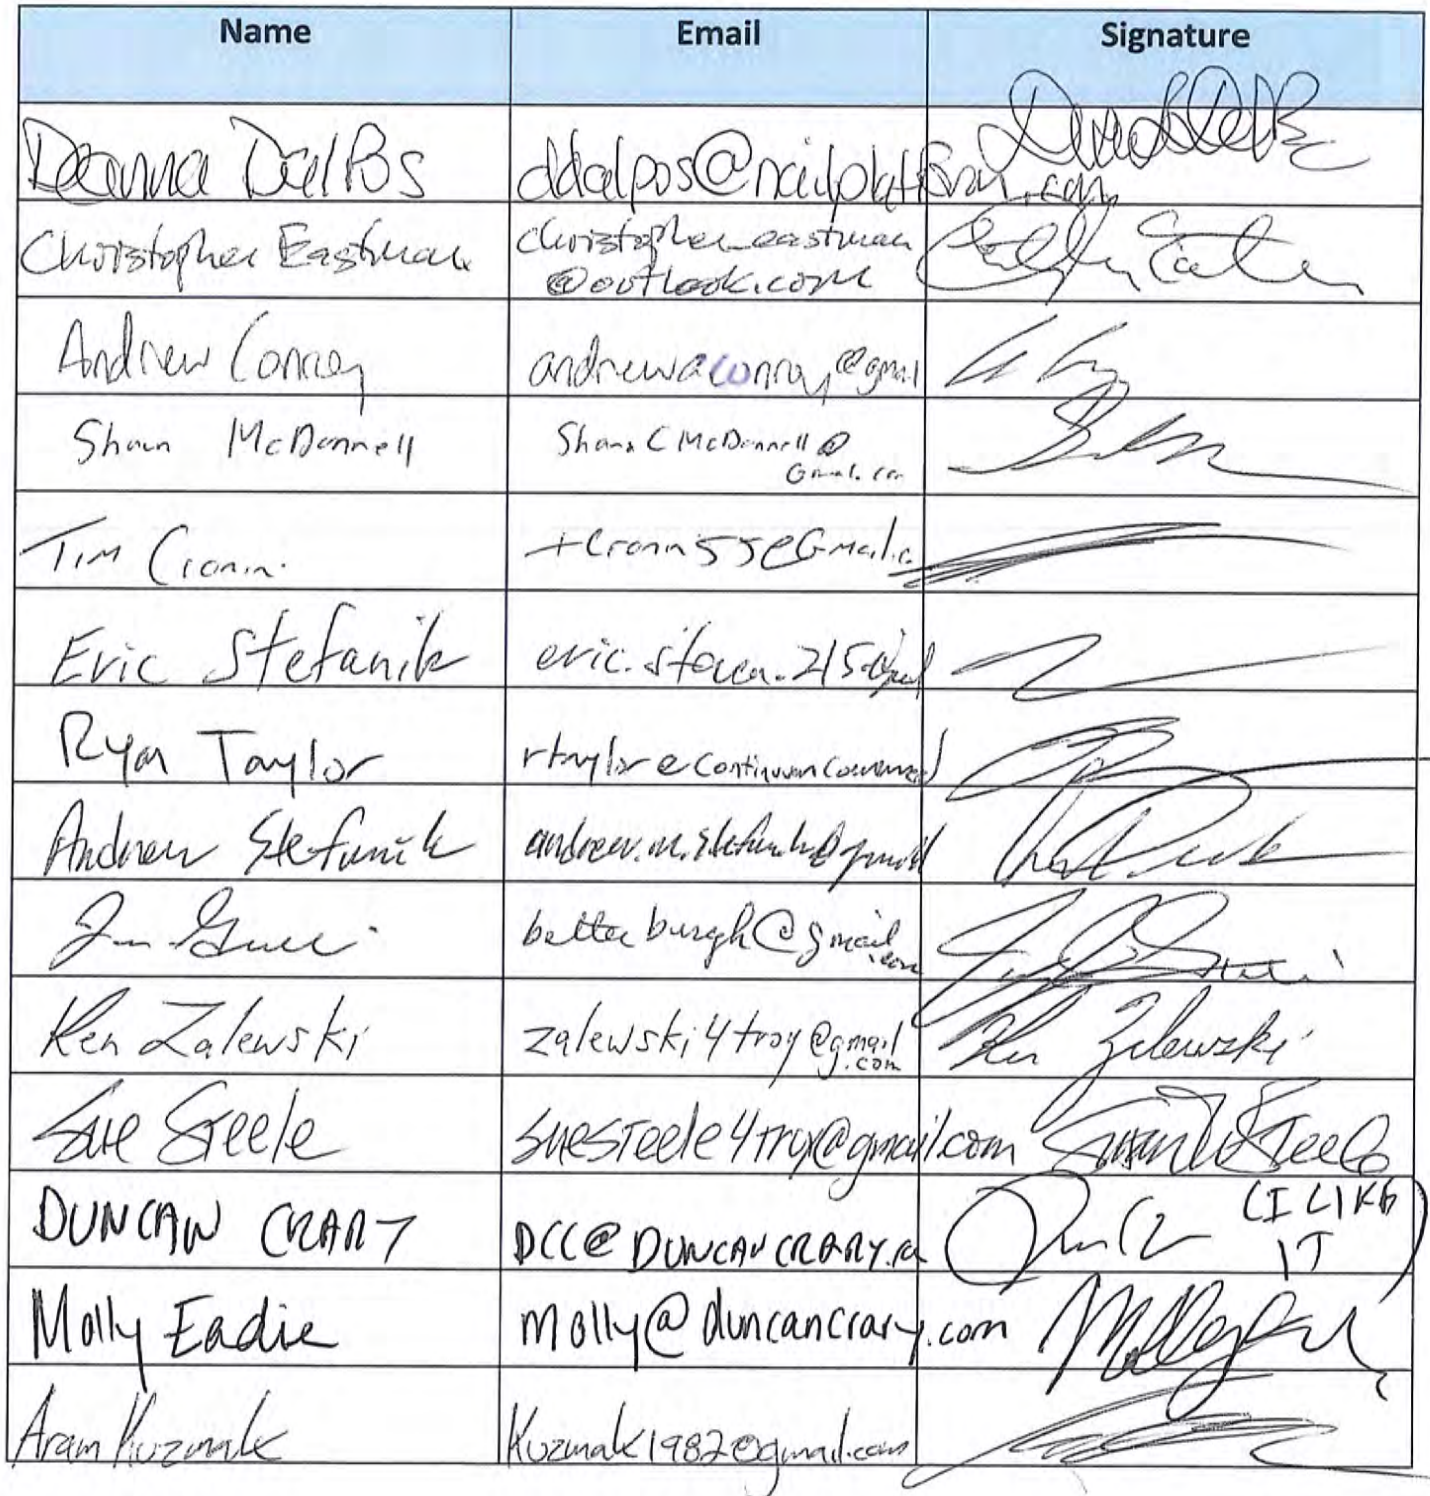 Name Email Signature
Deanna DalPos ddalpos@nailplatform.com
Christopher Eastman christopher_eastman
@outlook.com
Andrew Conroy andrewaconroy@gmail
Shawn McDonnell ShawnCMcDonnell@
Gmail.com
Tim Cronin tcronin55@Gmail.c
Eric Stefanik eric.steven.215@gmail
Ryan Taylor rtaylor@continuumcommercial
Andrew Stefanik andrew.m.stefanik@gmail
betterburgh@gmail
.com
Ken Zalewski zalewski4troy@gmail Ken Zalewski
.com
Sue Steele suesteele4troy@gmail.com Susan Steele
DUNCAN CRARY DCC@DUNCANCRARY.co (I LIKE
IT)
Molly Eadie molly@duncancrary.com
Aram Kuzmak Kuzmak1982@gmail.com